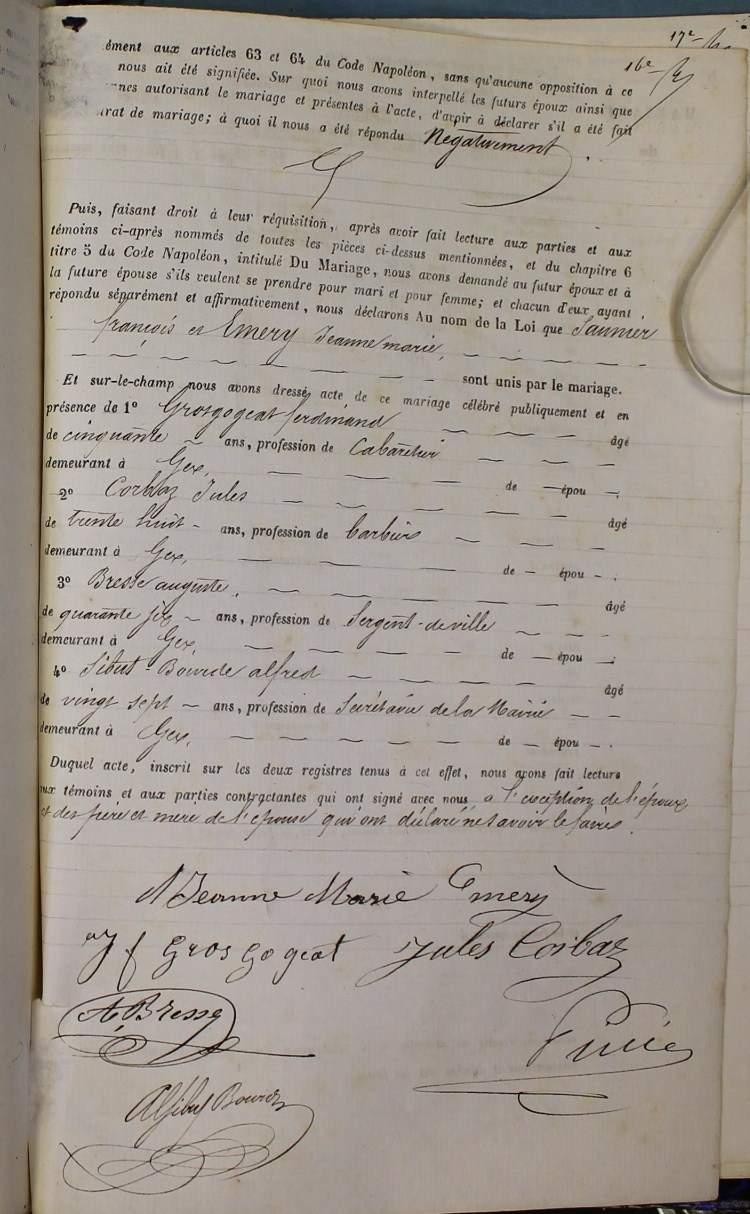 17e
16e
ément aux articles 63 et 64 du Code Napoléon, sans qu'aucune opposition à ce
nous ait été signifiée. Sur quoi nous avons interpellé les futurs époux ainsi que
nes autorisant le mariage et présentes à l'acte, d'avoir à déclarer s'il a été fait
trat de mariage; à quoi il nous a été répondu Négativement.
Puis, faisant droit à leur réquisition, après avoir fait lecture aux parties et aux
témoins ci-après nommés de toutes les pièces ci-dessus mentionnées, et du chapitre 6
titre 5 du Code Napoléon, intitulé Du Mariage, nous avons demandé au futur époux et à
la future épouse s'ils veulent se prendre pour mari et pour femme; et chacun d'eux ayant
répondu séparément et affirmativement, nous déclarons Au nom de la Loi que Saunier
françois et Emery Jeanne marie,
sont unis par le mariage.
Et sur-le-champ nous avons dressé acte de ce mariage célébré publiquement et en
présence de 1º Grosgogeat ferdinand âgé
de cinquante ans, profession de Cabaretier
demeurant à Gex, de — épou —.
2º Corbaz Jules âgé
de trente huit ans, profession de barbier
demeurant à Gex, de — épou —.
3º Bresse auguste, âgé
de quarante six ans, profession de Sergent-de ville
demeurant à Gex, de — épou —.
4º Sibut-Bourde alfred âgé
de vingt sept ans, profession de Secrétaire de la Mairie
demeurant à Gex, de — épou —.
Duquel acte, inscrit sur les deux registres tenus à cet effet, nous avons fait lecture
aux témoins et aux parties contractantes qui ont signé avec nous, à l'exception de l'époux
et des père et mère de l'épouse qui ont déclaré ne savoir le faire.
Jeanne Marie Emery
f Grosgogeat Jules Corbaz
A Bresse